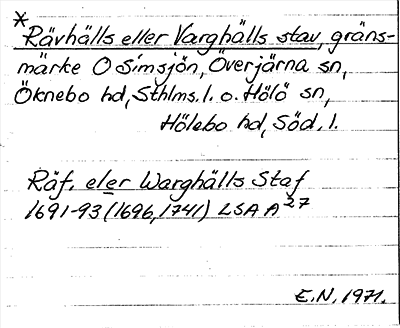 *
Rävhälls eller Varghälls stav, gräns-
märke O Simsjön, Överjärna sn,
Öknebo hd, Sthlms. l. o. Hölö sn,
Hölebo hd, Söd. l.
Räf. eler Warghälls Staf
1691-93 (1696, 1741) LSA A 27
E.N. 1971.